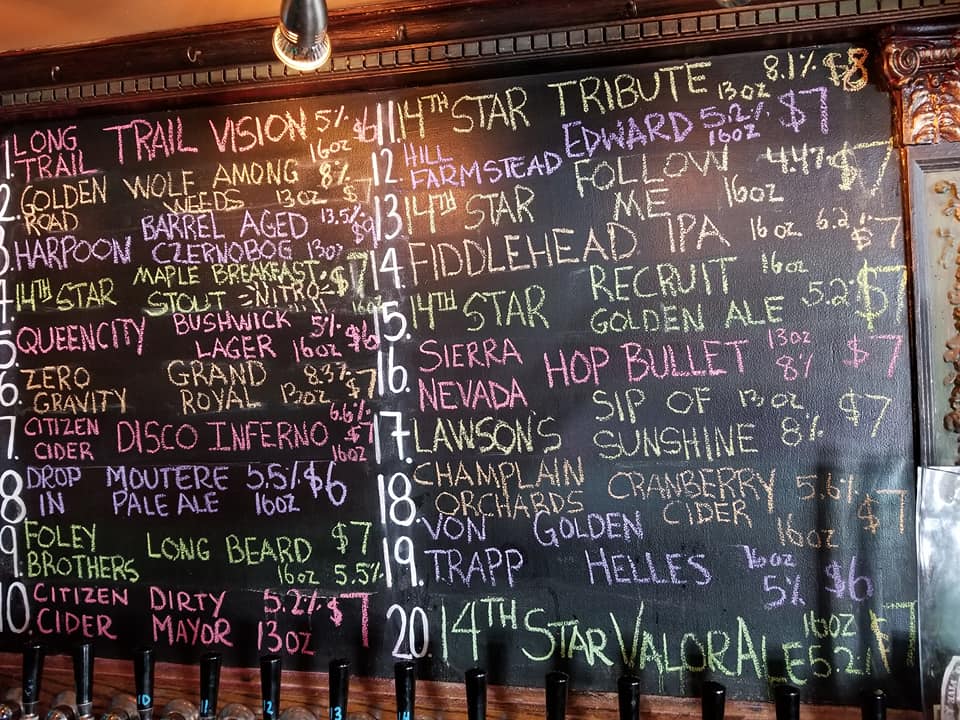 1. LONG TRAIL TRAIL VISION 5% 16oz $6
2. GOLDEN ROAD WOLF AMONG WEEDS 8% 13oz $7
3. HARPOON BARREL AGED CZERNOBOG 13.5% 13oz $9
4. 14TH STAR MAPLE BREAKFAST STOUT NITRO $7 16oz
5. QUEENCITY BUSHWICK LAGER 5% 16oz $6
6. ZERO GRAVITY GRAND ROYAL 8.3% 13oz $7
7. CITIZEN CIDER DISCO INFERNO 6.6% 16oz $7
8. DROP IN MOUTERE PALE ALE 5.5% 16oz $6
9. FOLEY BROTHERS LONG BEARD $7 16oz 5.5%
10. CITIZEN CIDER DIRTY MAYOR 5.2% 13oz $7
11. 14TH STAR TRIBUTE 13oz 8.1% $8
12. HILL FARMSTEAD EDWARD 5.2% 16oz $7
13. 14TH STAR FOLLOW ME 16oz 4.4% $7
14. FIDDLEHEAD IPA 16oz 6.2% $7
15. 14TH STAR RECRUIT GOLDEN ALE 16oz 5.2 $7
16. SIERRA NEVADA HOP BULLET 13oz 8% $7
17. LAWSON'S SIP OF SUNSHINE 13oz 8% $7
18. CHAMPLAIN ORCHARDS CRANBERRY CIDER 5.6% 16oz $7
19. VON TRAPP GOLDEN HELLES 16oz 5% $6
20. 14TH STAR VALOR ALE 16oz 5.2% $7
10
11
12
13
14